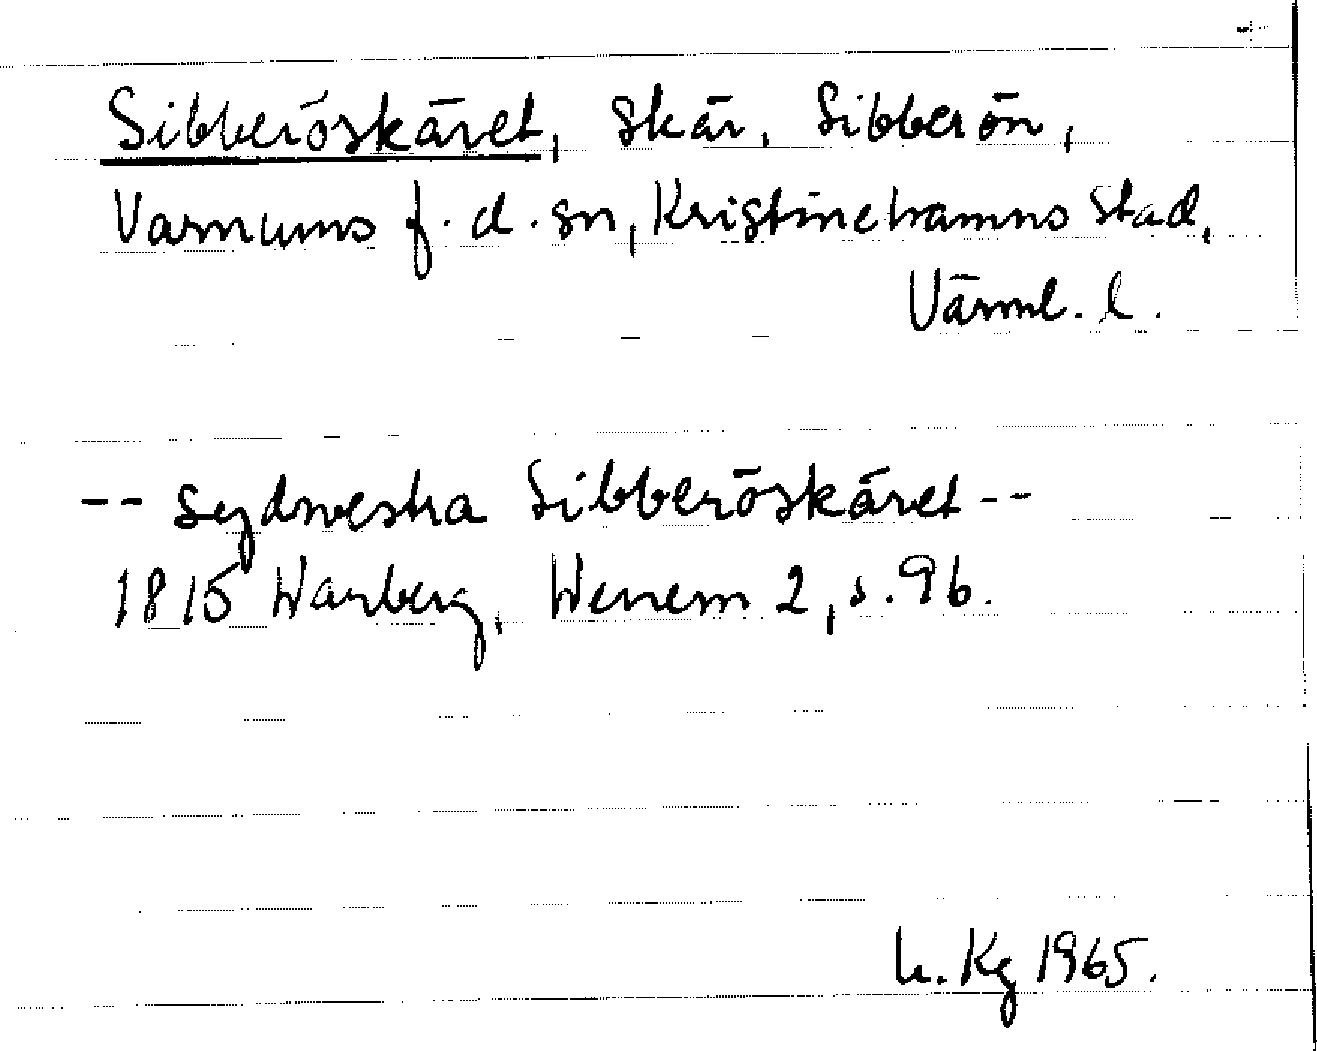 Sibberöskäret, skär, Sibberön,
Varnums f.d. sn, Kristinehamns stad,
Värml. l.
-- sydvestra Sibberöskäret --
1815 Warberg, Wenern 2, s. 96.
h. Kg 1965.